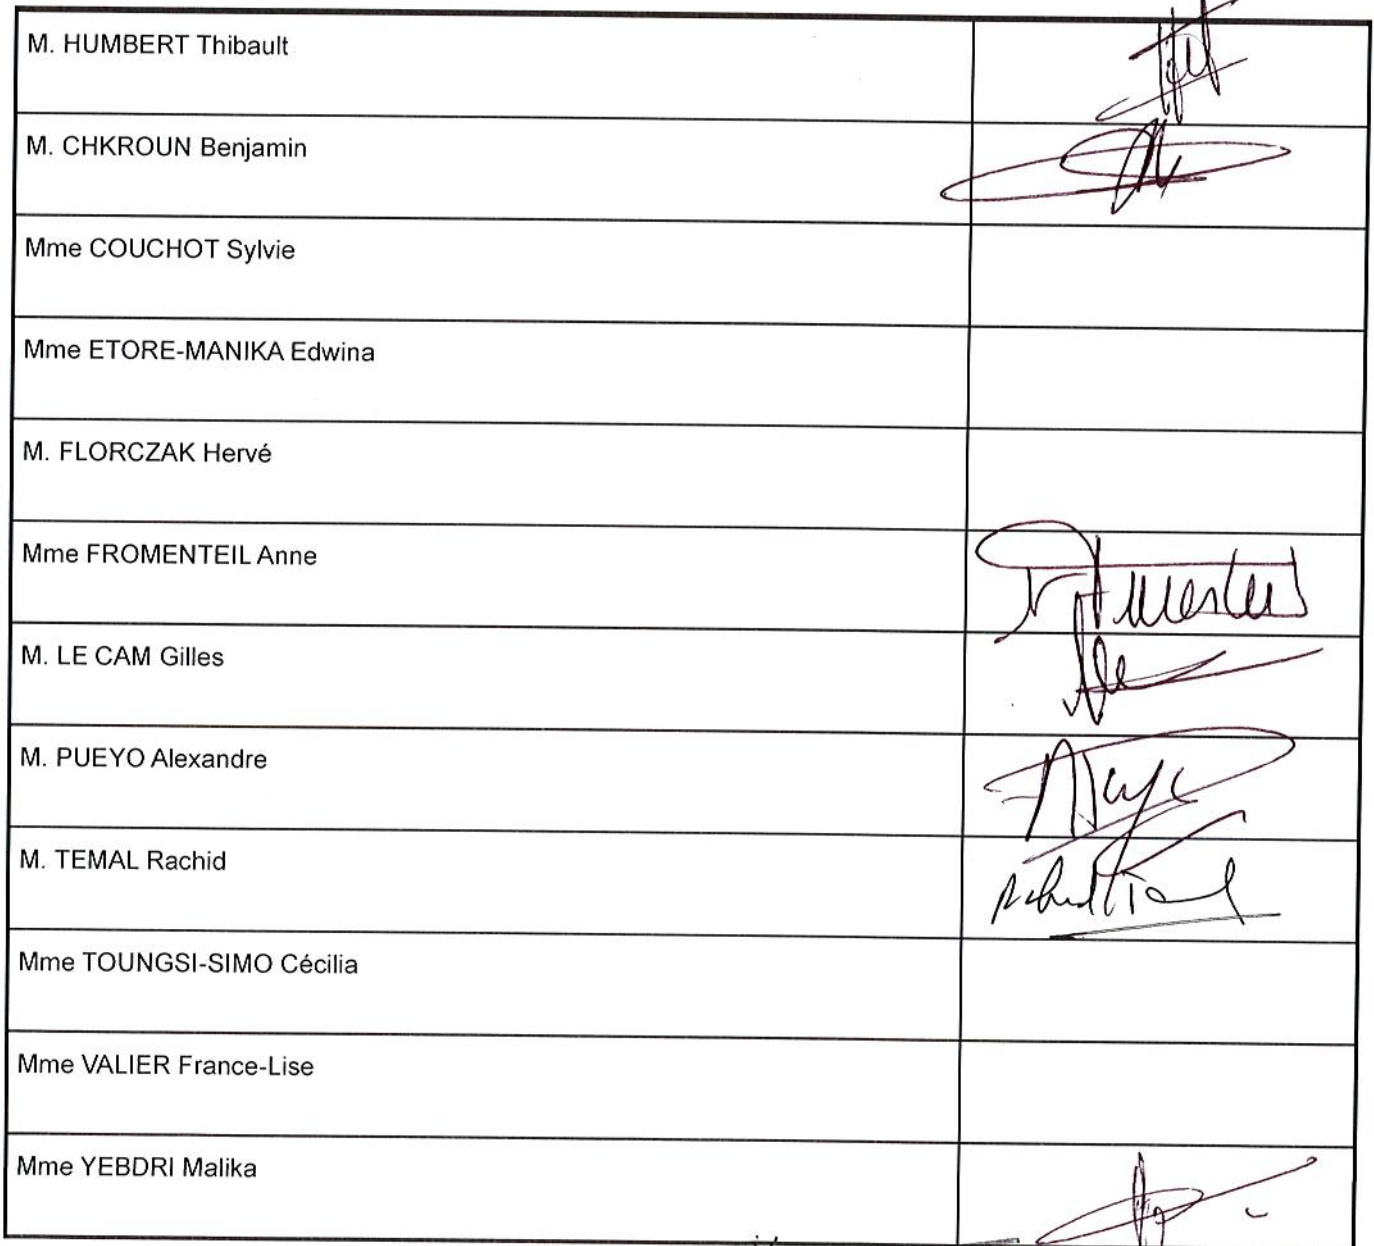 M. HUMBERT Thibault
M. CHKROUN Benjamin
Mme COUCHOT Sylvie
Mme ETORE-MANIKA Edwina
M. FLORCZAK Hervé
Mme FROMENTEIL Anne
M. LE CAM Gilles
M. PUEYO Alexandre
M. TEMAL Rachid
Mme TOUNGSI-SIMO Cécilia
Mme VALIER France-Lise
Mme YEBDRI Malika